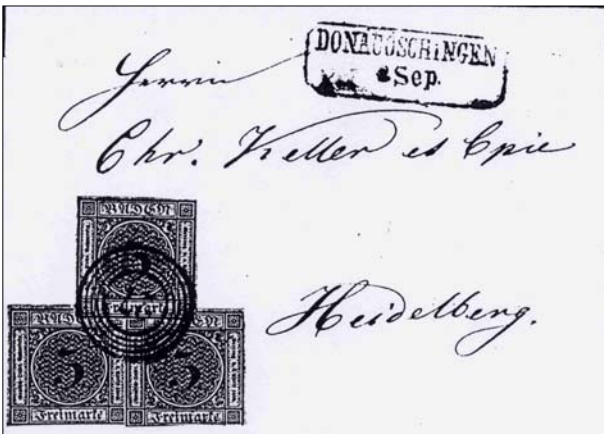 DONAUÖSCHINGEN
Sep.
Herrn
Chr. Keller et Cpie
Heidelberg.
BADEN
Freimarke
BADEN
5
Freimarke
BADEN
5
Freimarke